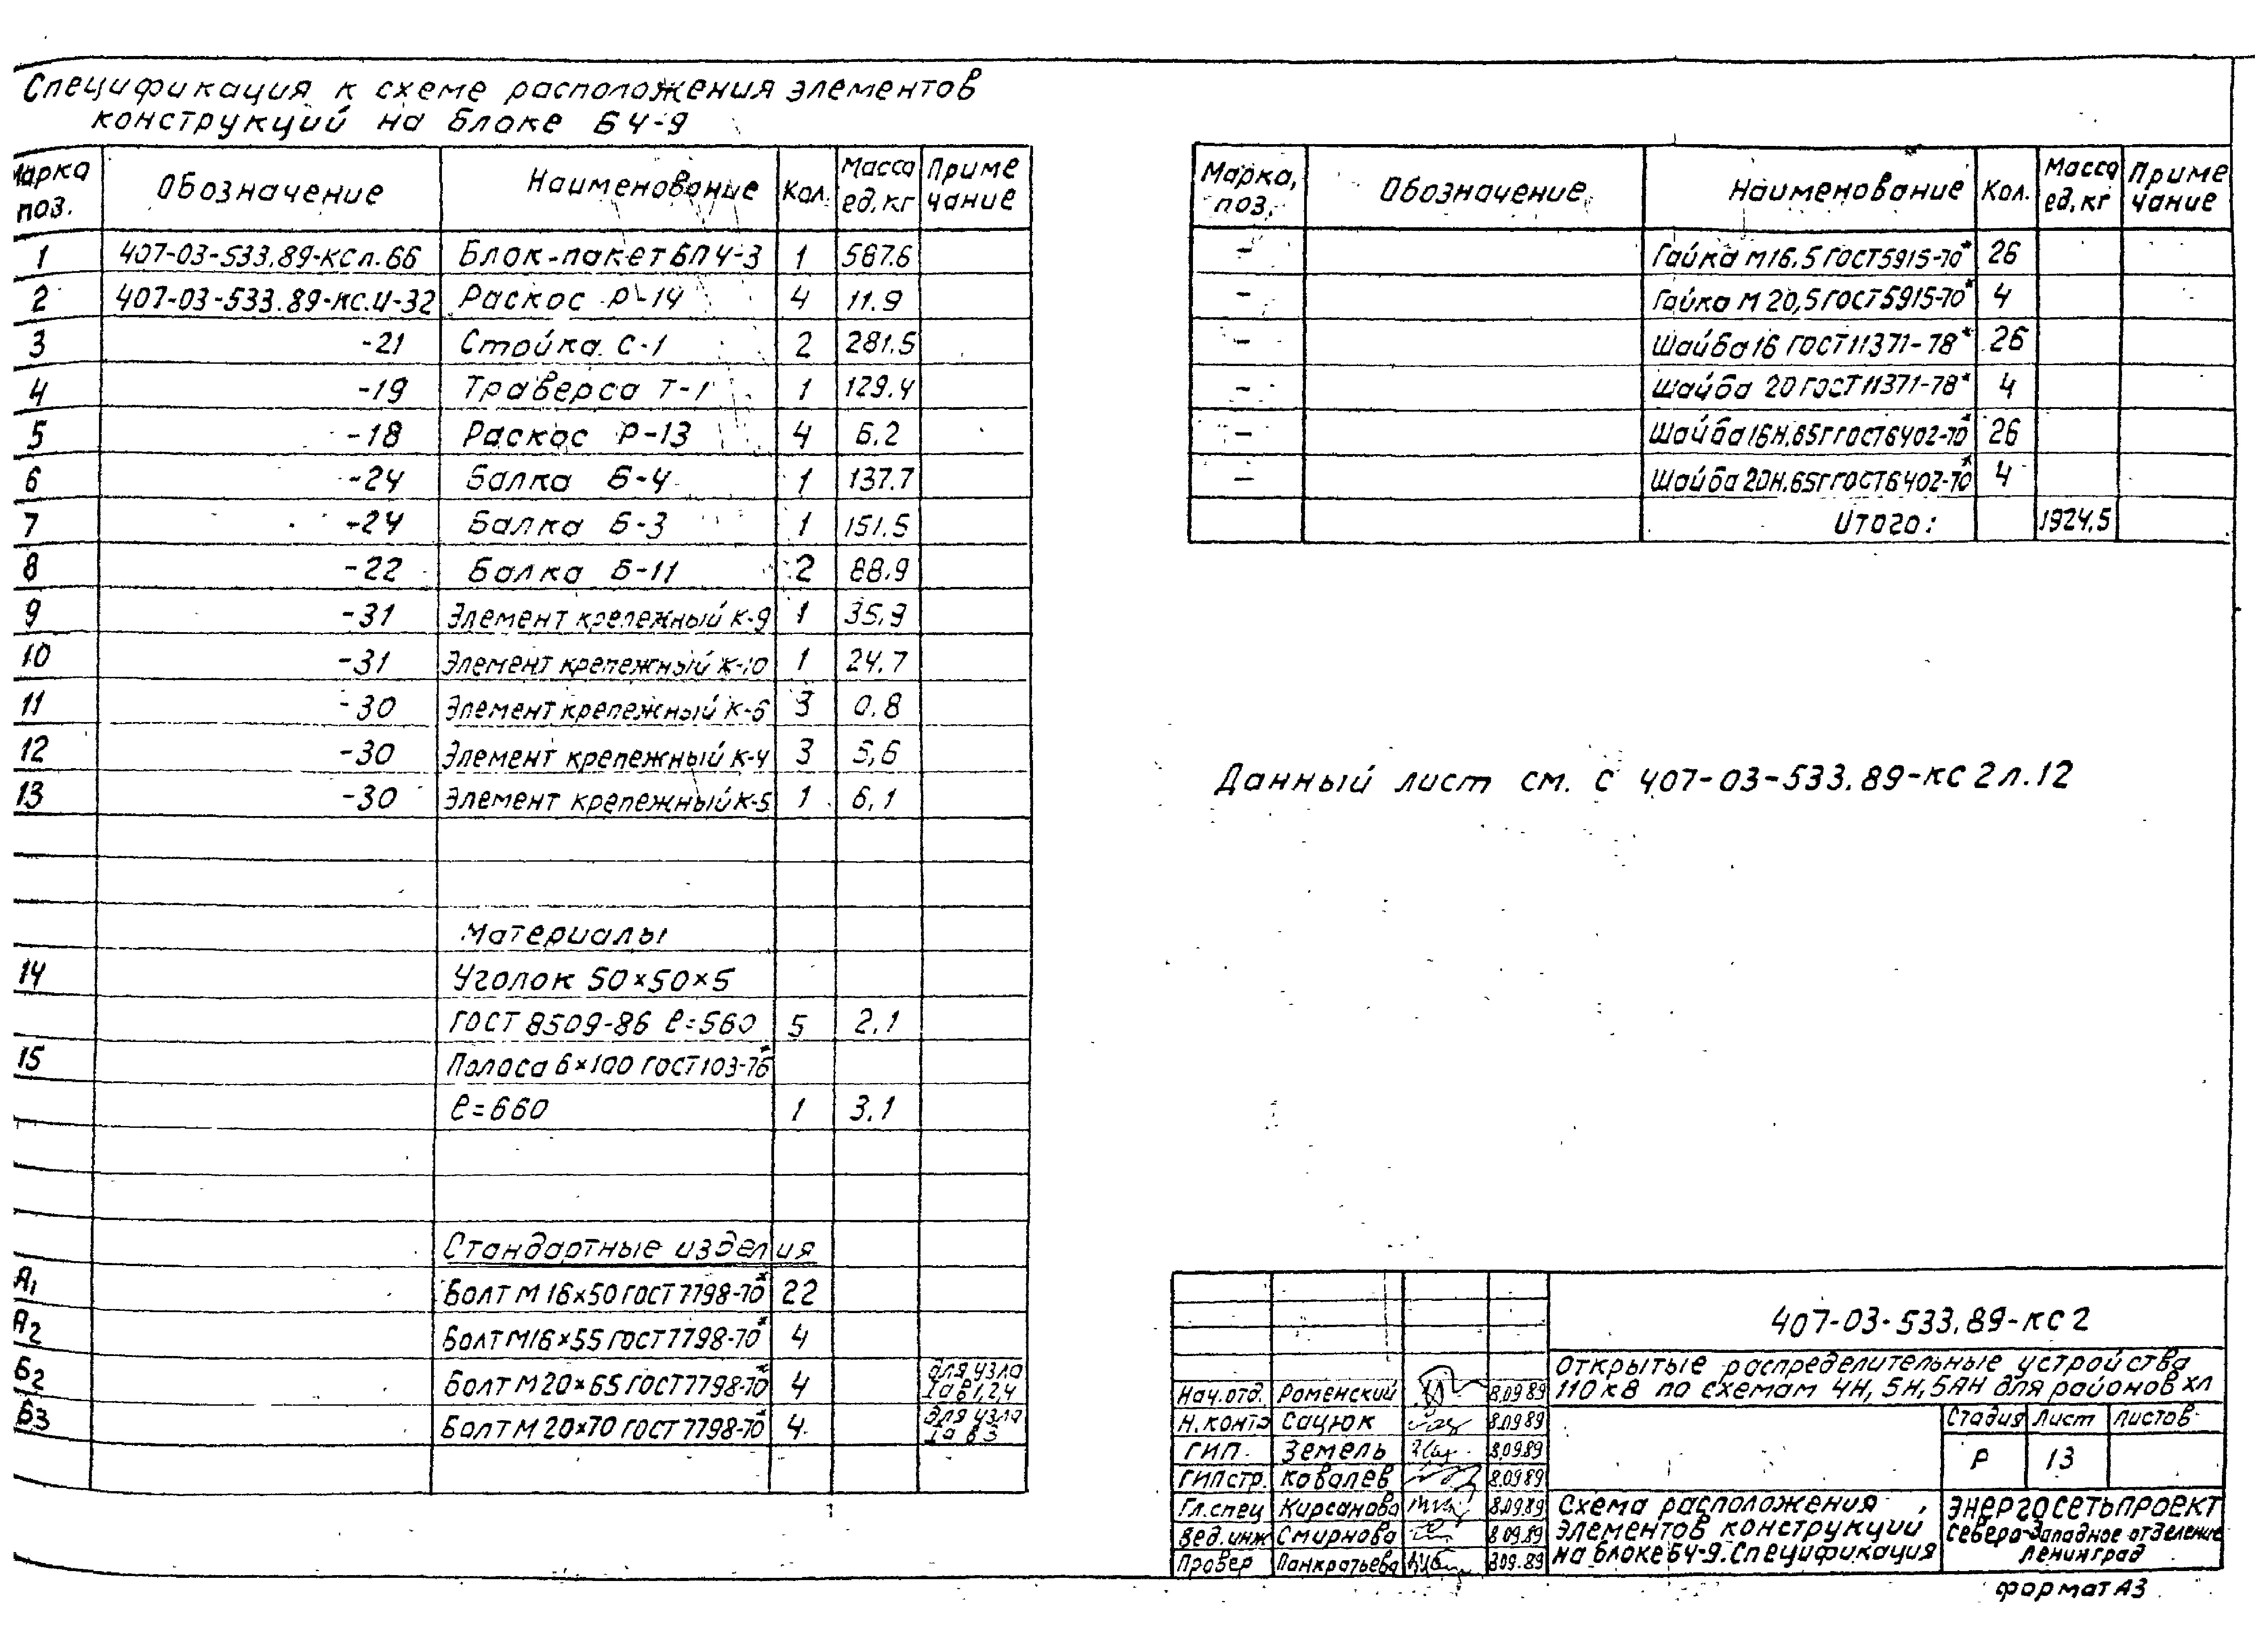 Спецификация к схеме расположения элементов
конструкций на блоке БЧ-9
Марка поз. Обозначение Наименование Кол. Масса ед, кг Приме чание
1 407-03-533.89-КС л.66 Блок-пакет БПЧ-3 1 567.6
2 407-03-533.89-КС.И-32 Раскос Р-14 4 11.9
3 -21 Стойка С-1 2 281.5
4 -19 Траверса Т-1 1 129.4
5 -18 Раскос Р-13 4 6.2
6 -24 Балка Б-4 1 137.7
7 -24 Балка Б-3 1 151.5
8 -22 Балка Б-11 2 88.9
9 -31 Элемент крепежный К-9 1 35.9
10 -31 Элемент крепежный К-10 1 24.7
11 -30 Элемент крепежный К-6 3 0.8
12 -30 Элемент крепежный К-4 3 5,6
13 -30 Элемент крепежный К-5 1 6,1
Материалы
14 Уголок 50×50×5
ГОСТ 8509-86 ℓ=560 5 2,1
15 Полоса 6×100 ГОСТ 103-76*
ℓ=660 1 3.1
Стандартные изделия
А1 Болт М16×50 ГОСТ 7798-70* 22
А2 Болт М16×55 ГОСТ 7798-70* 4
Б2 Болт М20×65 ГОСТ 7798-70* 4 для узла 1а в 1,2,4
Б3 Болт М20×70 ГОСТ 7798-70* 4 для узла 1а в 3
Марка, поз. Обозначение Наименование Кол. Масса ед, кг Приме чание
- Гайка М16.5 ГОСТ 5915-70* 26
- Гайка М20,5 ГОСТ 5915-70* 4
- Шайба 16 ГОСТ 11371-78* 26
- Шайба 20 ГОСТ 11371-78* 4
- Шайба 16Н.65Г ГОСТ 6402-70* 26
- Шайба 20Н.65Г ГОСТ 6402-70* 4
Итого: 1924,5
Данный лист см. с 407-03-533.89-КС2 л.12
407-03-533.89-КС2
Открытые распределительные устройства
110 кВ по схемам 4Н, 5Н, 5АН для районов ХЛ
Нач.отд. Роменский 8.09.89
Н.контр Сацюк 8.09.89
ГИП Земель 8.09.89
ГИП стр. Ковалев 8.09.89
Гл.спец Кирсанова 8.09.89
Вед.инж Смирнова 8.09.89
Провер Панкратьева 8.09.89
Стадия Лист Листов
Р 13
Схема расположения
элементов конструкций
на блоке БЧ-9. Спецификация
ЭНЕРГОСЕТЬПРОЕКТ
Северо-Западное отделение
Ленинград
формат А3